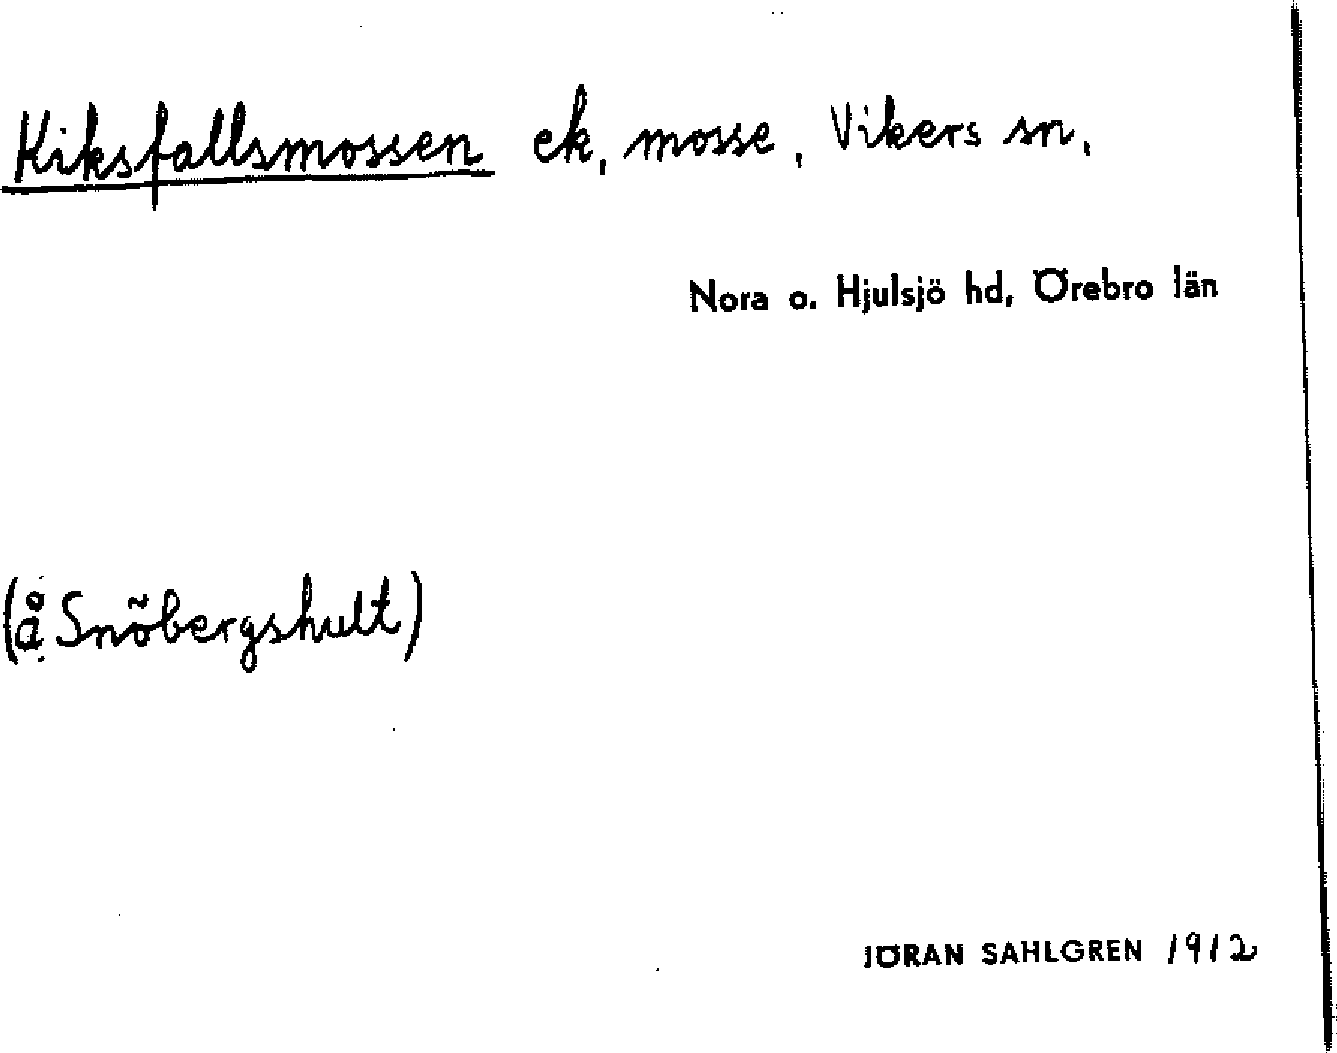 Kiksfallsmossen ek, mosse, Vikers sn,
Nora o. Hjulsjö hd, Örebro län
(å Snöbergshult)
JÖRAN SAHLGREN 1912